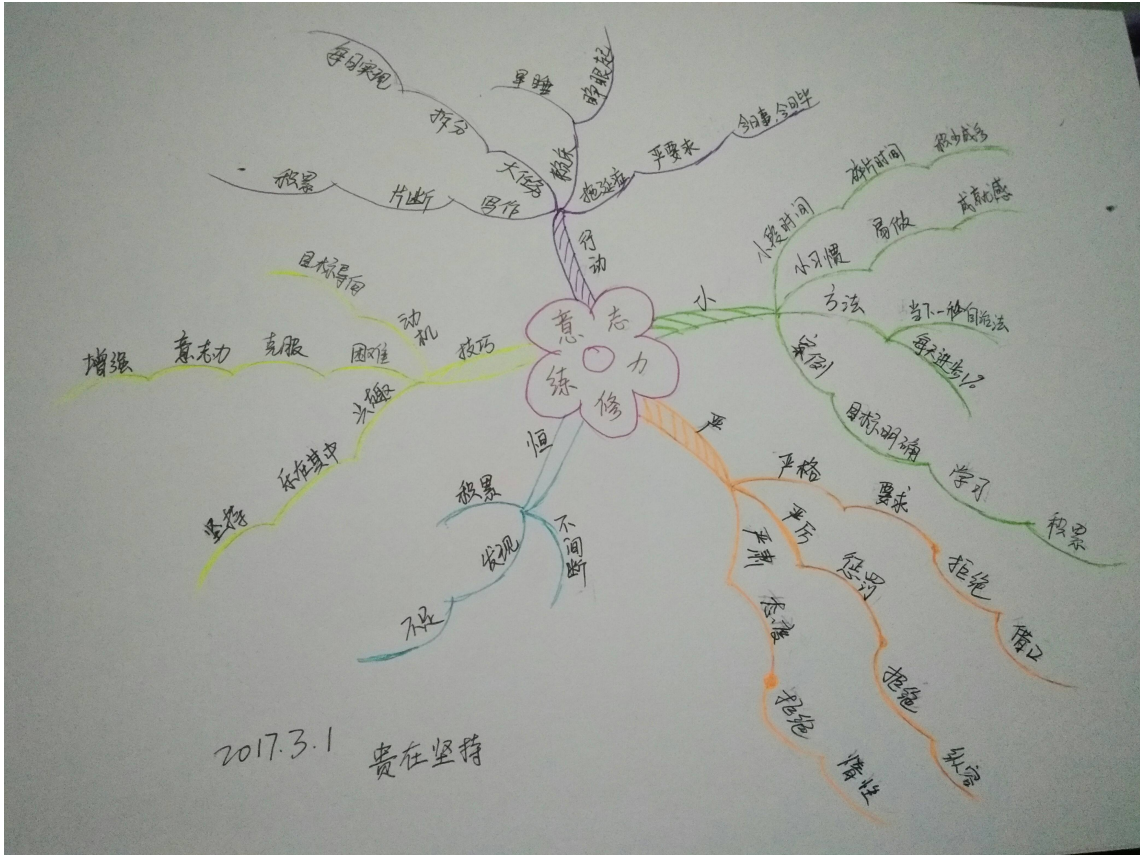 意志力修练
行动
写作
片断
积累
大任务
拆分
每日实现
赖床
早睡
睁眼起
拖延症
严要求
今日事,今日毕
小
小段时间
碎片时间
积少成多
小习惯
易做
成就感
方法
当下一秒自治法
每天进步1%
案例
目标明确
学习
积累
严
严格
要求
拒绝
借口
严厉
惩罚
拒绝
纵容
严肃
态度
拒绝
惰性
恒
不间断
发现
不足
积累
技巧
动机
目标导向
困难
克服
意志力
增强
兴趣
乐在其中
坚持
2017.3.1
贵在坚持